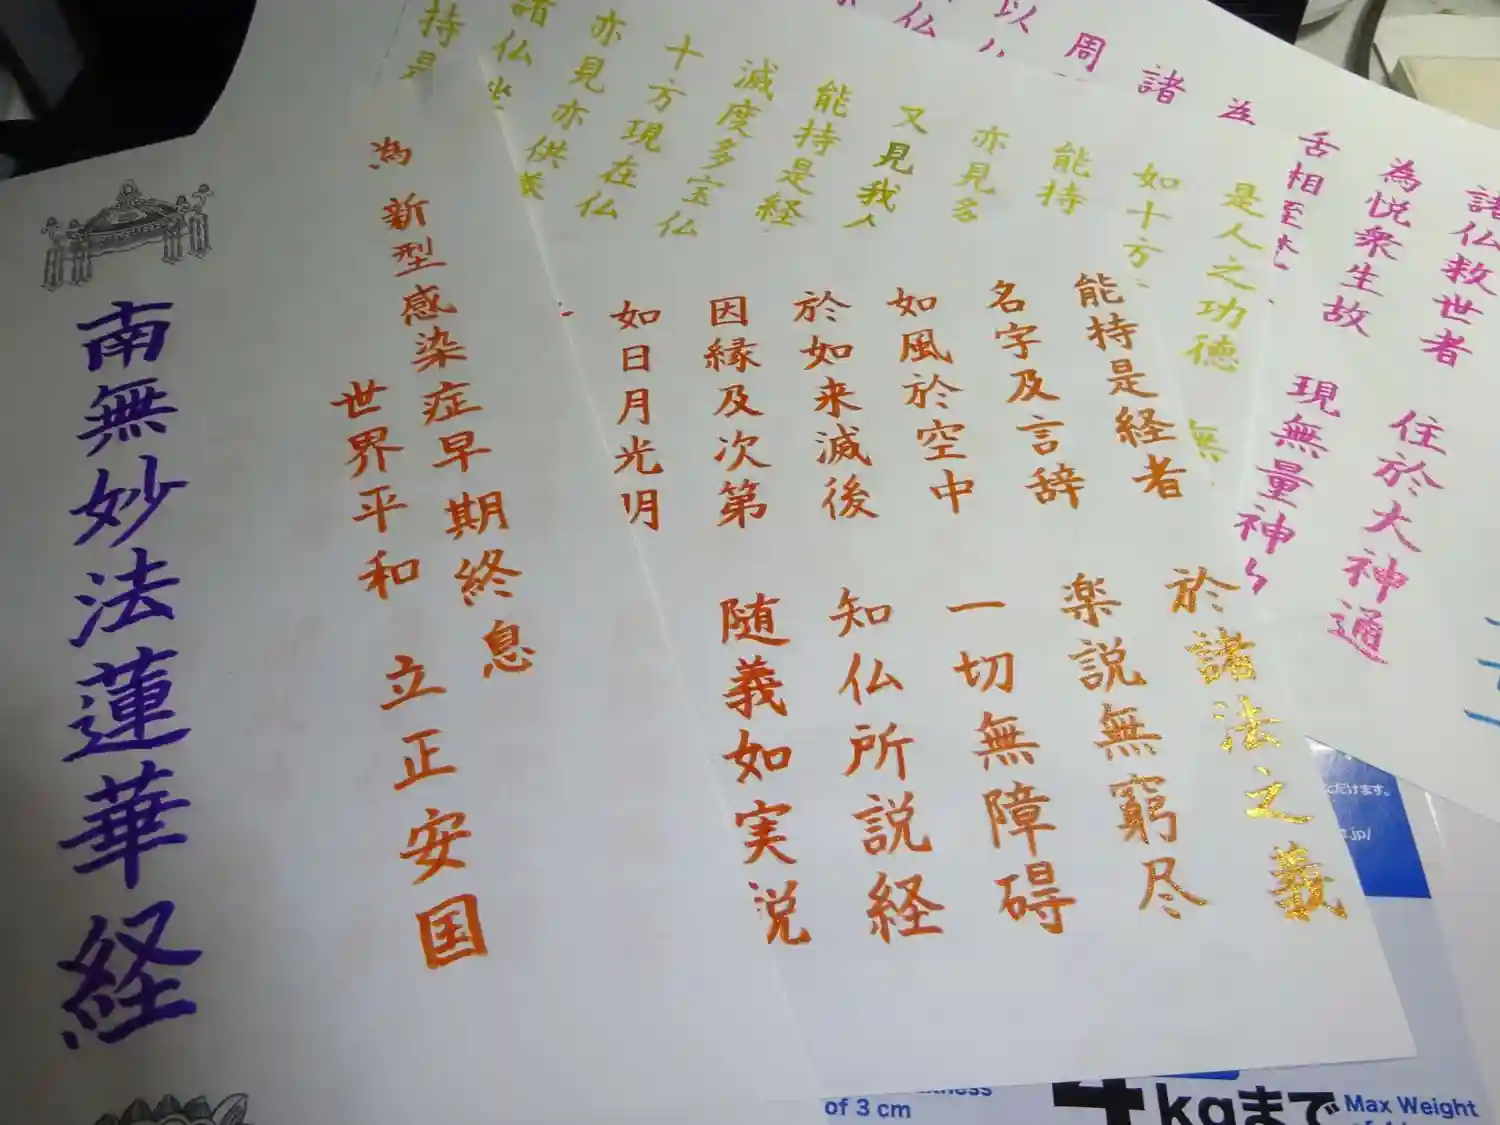 諸仏救世者 住於大神通
為悦衆生故 現無量神
舌相至
諸
周
以
仏
是人之功徳 無
如十方
能持
亦見多
又見我
能持是経
滅度多宝仏
十方現在仏
亦見亦供養
諸仏坐
持是
能持是経者 於諸法之義
名字及言辞 楽説無窮尽
如風於空中 一切無障碍
於如来滅後 知仏所説経
因縁及次第 随義如実説
如日月光明
為 新型感染症早期終息
世界平和 立正安国
南無妙法蓮華経
ただけます。
.jp/
of 3 cm
kgまで
Max Weight